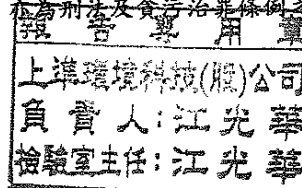 亦為刑法及貪污治罪條例
報告專用章
上準環境科技(股)公司
負責人:江光華
檢驗室主任:江光華